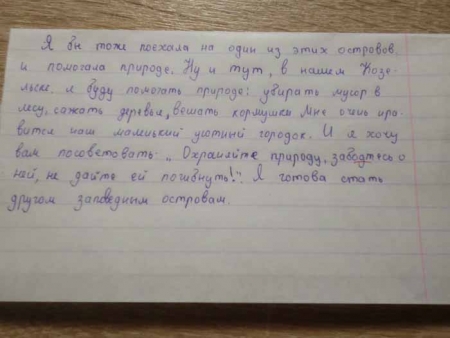 Я бы тоже поехала на один из этих островов
и помогала природе. Ну и тут, в нашем Козе-
льске. я буду помогать природе: убирать мусор в
лесу, сажать деревья, вешать кормушки. Мне очень нра-
вится наш маленький уютный городок. И я хочу
вам посоветовать: „Охраняйте природу, заботтесь о
ней, не дайте ей погибнуть!". Я готова стать
другом заповедным островам.